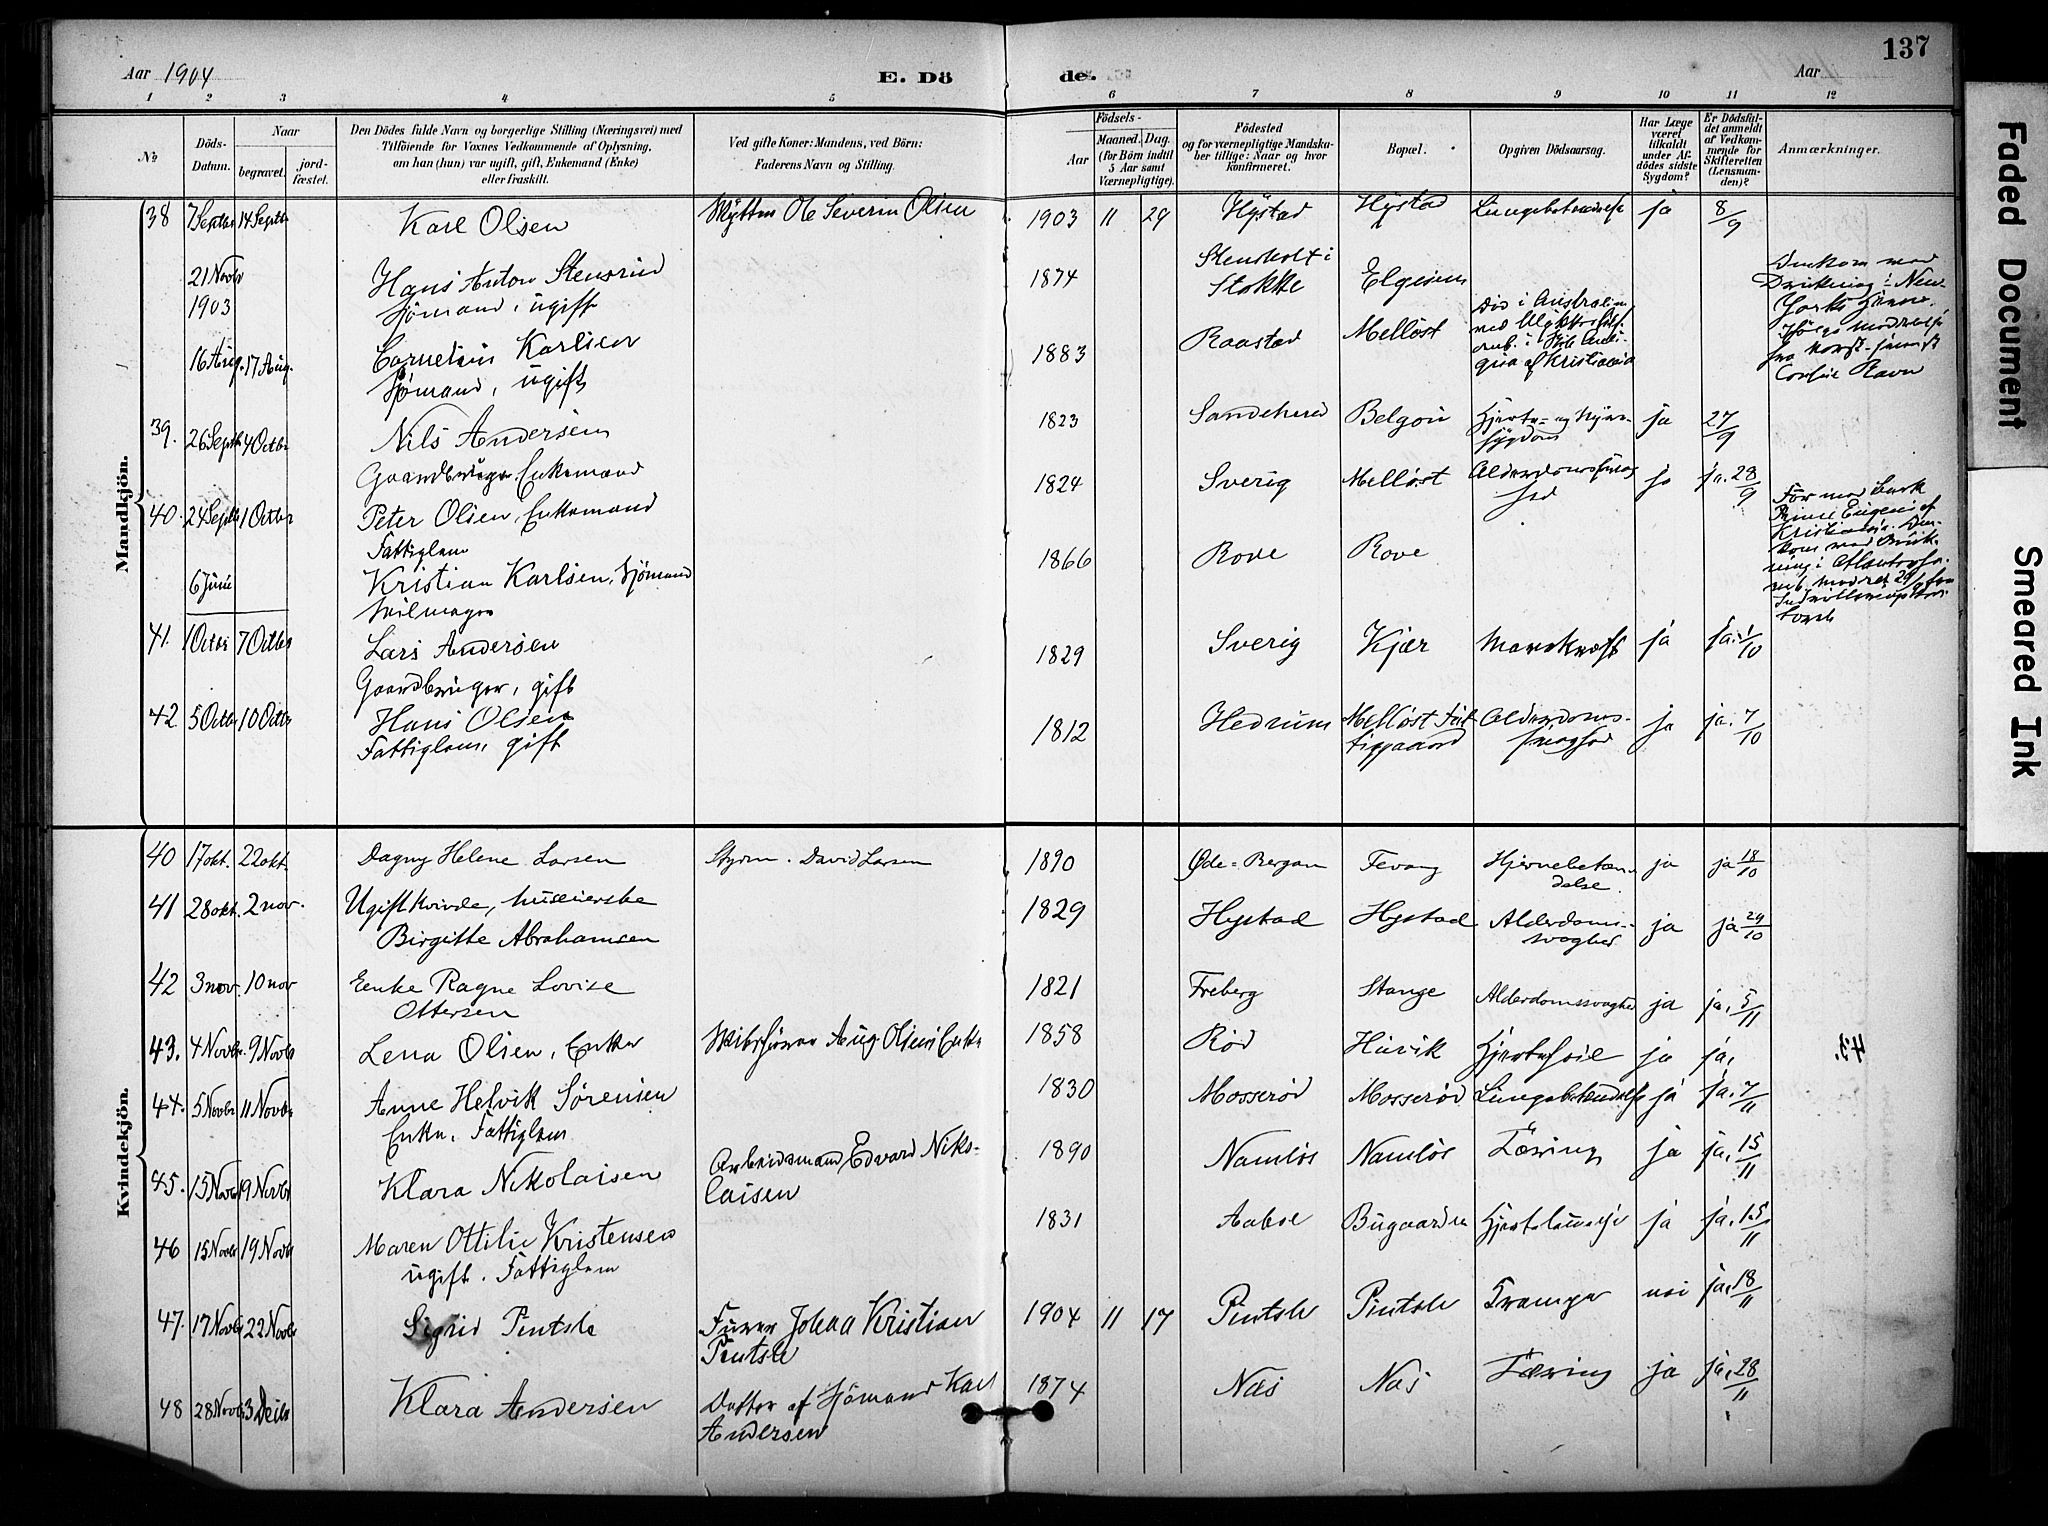 137
Aar 1904
E. Döde.
Aar
1 2 3 4 5 6 7 8 9 10 11 12
No
Döds-Datum.
Naar
begravet.
jordfæstet.
Den Dödes fulde Navn og borgerlige Stilling (Næringsvei) med
Tilföiende for Voxnes Vedkommende af Oplysning,
om han (hun) var ugift, gift, Enkemand (Enke)
eller fraskilt.
Ved gifte Koner: Mandens, ved Börn:
Faderens Navn og Stilling.
Födsels-
Aar
Maaned. Dag.
(for Börn indtil
5 Aar samt
Værnepligtige).
Födested
og for værnepligtige Mandska-
ber tillige: Naar og hvor
konfirmeret.
Bopæl.
Opgiven Dödsaarsag.
Har Læge
været
tilkaldt
under Af-
dödes sidste
Sygdom?
Er Dödsfal-
det anmeldt
af Vedkom-
mende for
Skifteretten
(Lensman-
den)?
Anmærkninger.
Mandkjön.
38 7 Septbr 14 Septbr Karl Olsen Ole Severin Olsen 1903 11 29 Hystad Hystad Lungebetændelse ja 8/9
21 Novbr 1903 Hans Anton Stensrud
Sjømand, ugift 1874 Stensholt i
Stokke Elgesem Omkom ved
Drukning i New
Yorks Havn.
16 Aug. 17 Aug. Cornelius Karlsen
Sjømand, ugift 1883 Raastad Melløst Død i Australien
af Kristiania
39. 26 Septbr 4 Octbr Nils Andersen
Gaardbruger, Enkemand 1823 Sandeherred Hjerte- og Nyre-
sygdom ja 27/9
40. 24 Septbr 1 Octbr Peter Olsen, Enkemand
Fattiglem 1824 Sverig Melløst Alderdomssvag-
hed ja ja. 28/9
6 Juni Kristian Karlsen, Sjømand
1866 Rove Rove Før med Bark
Prins Eugen af
Kristiania. Om-
kom ved Druk-
ning i Atlanterha-
41. 1 Octbr 7 Octbr Lars Andersen
Gaardbruger, gift 1829 Sverig Kjær Mavekræft ja ja. 1/10
42 5 Octbr 10 Octbr Hans Olsen
Fattiglem, gift 1812 Hedrum Melløst Fat-
tiggaard Alderdoms-
svaghed ja ja. 7/10
Kvindekjön.
40 17 okt. 22 okt. Dagny Helene Larsen Styrm. David Larsen 1890 Øde-Bergan Fevang Hjernebetæn-
delse. ja ja 18/10
41 28 okt. 2 nov. Ugift Kvinde, huseierske
Birgitte Abrahamsen 1829 Hystad Hystad Alderdoms-
svaghed ja ja 29/10
42 3 nov. 10 nov Enke Ragne Lovise
Ottersen 1821 Freberg Stange Alderdomssvaghed ja ja, 5/11
43. 4 Novbr. 9 Novbr Lena Olsen, Enke Skibsfører Aug. Olsens Enke 1858 Rød Huvik Hjertefeil ja ja, 43.
44. 5 Novbr 11 Novbr Anne Helvik Sørensen
Enke, Fattiglem 1830 Mosserød Mosserød Lungebetændelse ja ja. 7/11
45. 15 Novbr 19 Novbr Klara Nikolaisen Arbeidsmand Edvard Niko-
laisen 1890 Namløs Namløs Tæring ja ja, 15/11
46 15 Novbr 19 Novbr Maren Ottilie Kristensen
ugift. Fattiglem 1831 Aaboe Bugaarden Hjertelammelse ja ja, 15/11
47. 17 Novbr 22 Novbr Sigrid Pintsle Johan Kristian
Pintsle 1904 11 17 Pintsle Pintsle Krampe nei ja, 18/11
48 28 Novbr 3 Decbr Klara Andersen Datter af Sjømand Karl
Andersen 1874 Næs Næs Tæring ja ja, 28/11
Faded Document
Smeared Ink